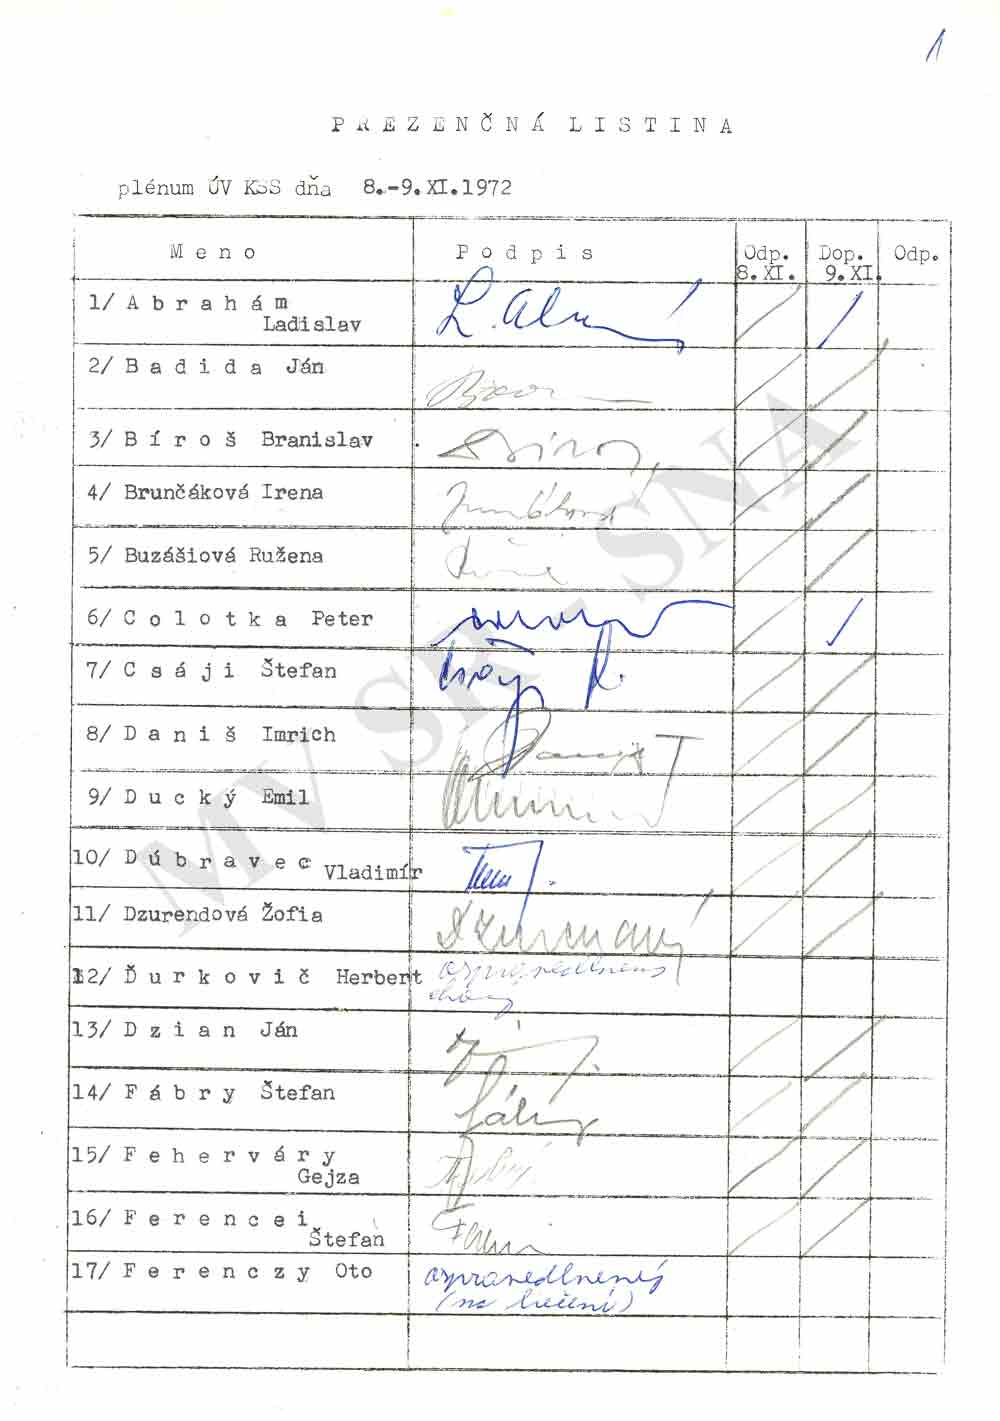 1
PREZENČNÁ LISTINA
plénum ÚV KSS dňa 8.-9.XI.1972
Meno Podpis Odp. 8.XI. Dop. 9.XI. Odp.
1/ Abrahám
Ladislav
2/ Badida Ján
3/ Bíroš Branislav
4/ Brunčáková Irena
5/ Buzášiová Ružena
6/ Colotka Peter
7/ Csáji Štefan
8/ Daniš Imrich
9/ Ducký Emil
10/ Dúbravec Vladimír
11/ Dzurendová Žofia
12/ Ďurkovič Herbert ospravedlnený
chorý
13/ Dzian Ján
14/ Fábry Štefan
15/ Feherváry
Gejza
16/ Ferencei
Štefan
17/ Ferenczy Oto ospravedlnený
(na liečení)
MV SR - SNA